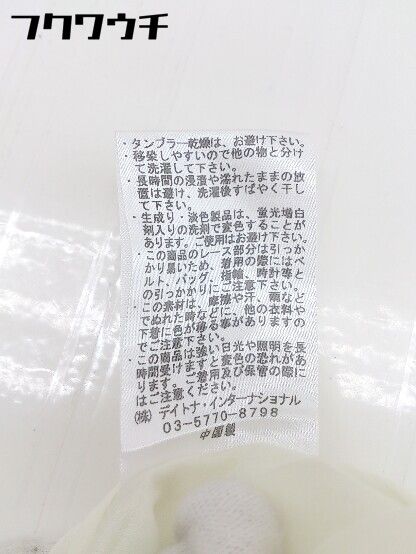 フクワウチ
・タンブラー乾燥は、お避け下さい。
・移染しやすいので他の物と分け
て洗濯して下さい。
・長時間の浸漬や濡れたままの放
置は避け、洗濯後すばやく干し
て下さい。
・生成り・淡色製品は、蛍光増白
剤入りの洗剤で変色することが
あります。ご使用はお避け下さい。
・この商品のレース部分は引っか
かり易いため、着用の際にはベ
ルト、バッグ、指輪、時計等と
の引っかかりにご注意下さい。
・この素材は、摩擦や汗、雨など
でぬれた時などに、他の衣料や
下着に色が移る事がありますの
でご注意下さい。
・この商品は強い日光や照明を長
時間受けますと変色の恐れがあ
ります。ご着用及び保管の際に
はご注意ください。
(株) デイトナ・インターナショナル
03-5770-8798
中国製